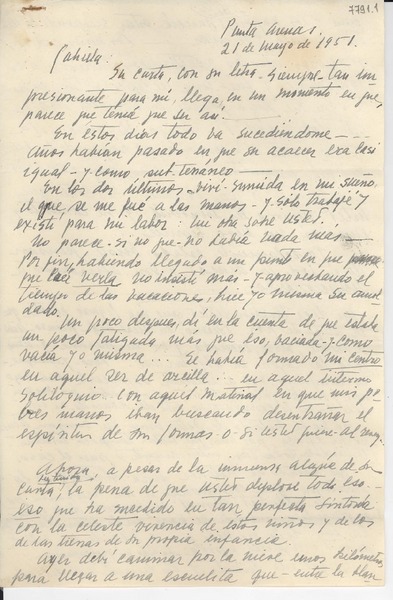 7791.1
Punta Arenas.
21 de mayo de 1951.
Gabriela:
Su carta, con su letra - siempre tan im
presionante para mí, llega, en un momento en que,
parece que tenía que ser así.
En estos días todo va sucediéndome -
Años habían pasado en que su acaecer era casi
igual - y como subterráneo -
En los dos últimos - viví - sumida en mi sueño,
el que, se me fué a las manos - y sólo trabajé y
existí para mi labor: mi obra sobre Usted.
No parece - si no que - no había nada más -
Por fin, habiendo llegado a un punto en que
me verla no insistí más - y aprovechando el
tiempo de las vacaciones, hice yo misma su
dado.
Un poco despues, dí en la cuenta de que estaba
un poco fatigada más que eso, vaciada - y como
vacía yo misma... Se había formado mi centro
en aquel ser de arcilla... en aquel interno
soliloquio con aquel material en que mis po
bres manos iban buscando desentrañar el
espíritu de sus formas o - si usted quiere - al
Ahora, a pesar de la inmensa alegría de su
carta, la pena de que usted deplore todo eso -
eso que ha sucedido en tan perfecta sintonía
con la celeste vivencia de estos niños y de los
de las tierras de su propia infancia.
Ayer debí caminar por la nieve unos kilómetros
para llegar a una escuelita que - entre la blan